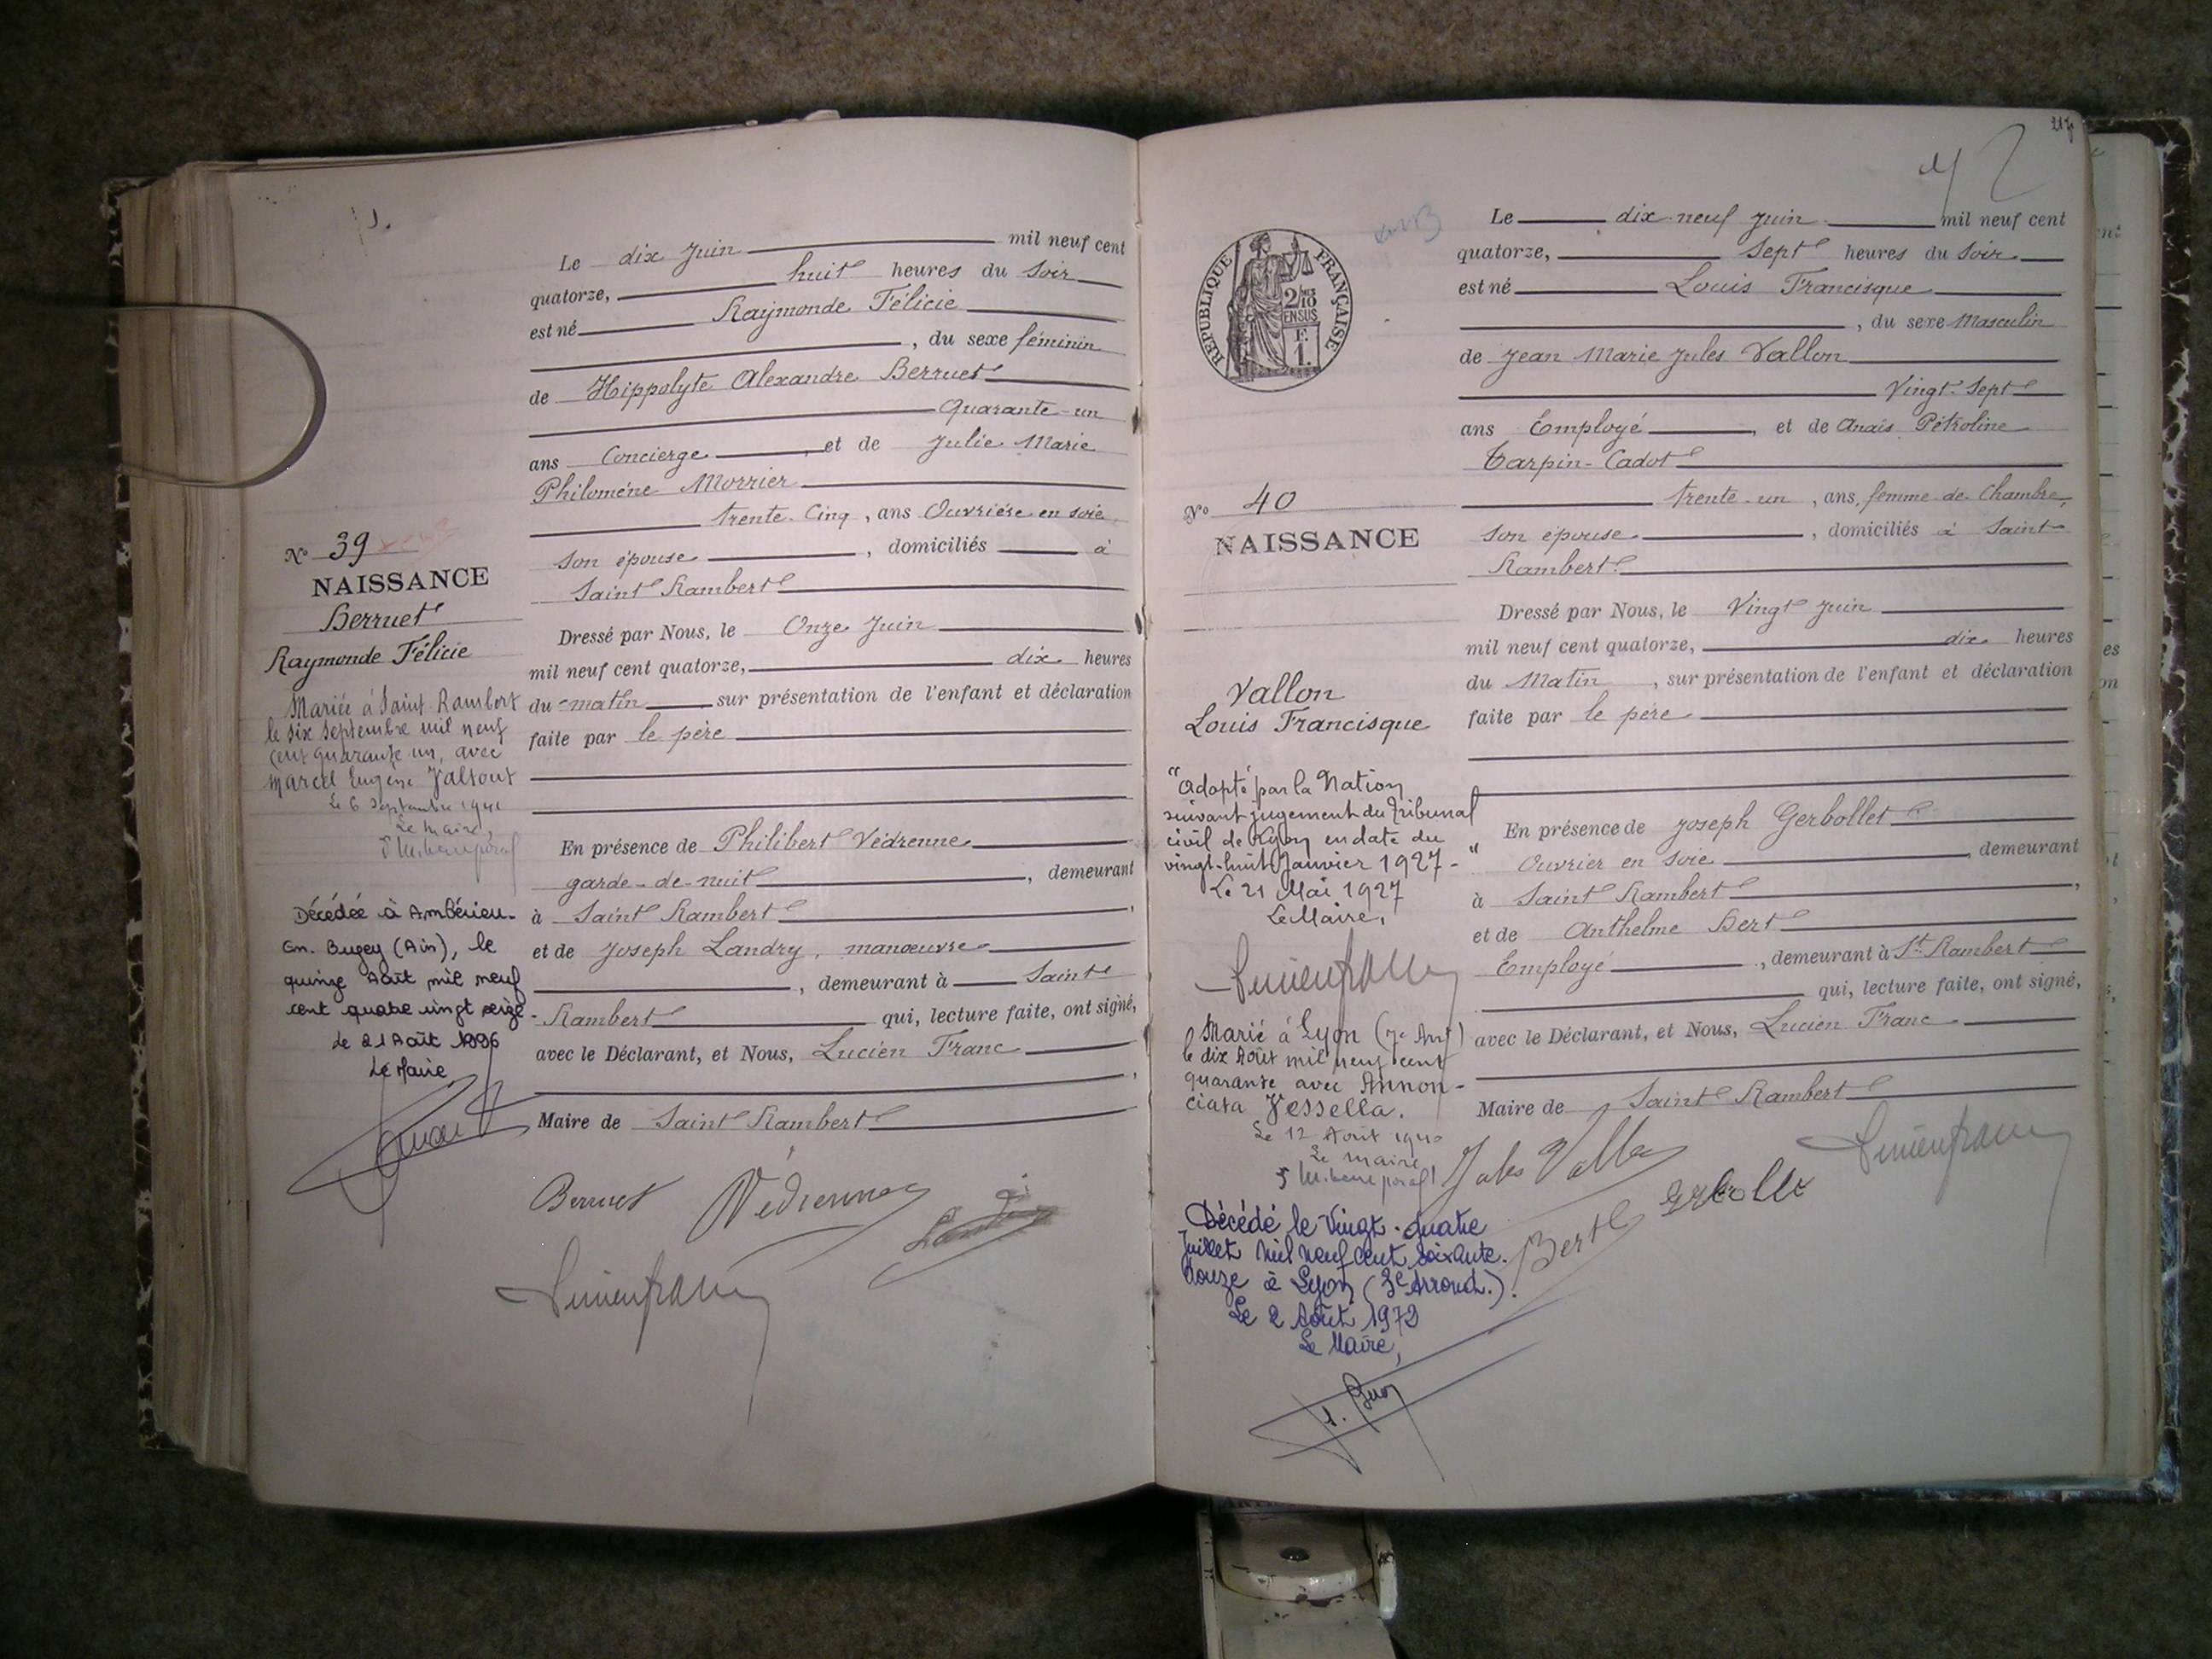 Le dix Juin mil neuf cent
quatorze, huit heures du Soir
est né Raymonde Félicie
, du sexe féminin
de Hippolyte Alexandre Berruet
Quarante-un
ans Concierge , et de Julie Marie
Philomène Morrier
trente-Cinq , ans Ouvrière en soie
Son épouse , domiciliés à
Saint Rambert
Dressé par Nous, le Onze Juin
mil neuf cent quatorze, dix heures
du matin sur présentation de l'enfant et déclaration
faite par le père
En présence de Philibert Védrenne
garde-de-nuit , demeurant
à Saint Rambert ,
et de Joseph Landry, manœuvre
, demeurant à Saint
Rambert qui, lecture faite, ont signé,
avec le Déclarant, et Nous, Lucien Franc
,
Maire de Saint Rambert
Berruet Védrenne Landry
Lucien franc
N° 39
NAISSANCE
Berruet
Raymonde Félicie
Mariée à Saint-Rambert
le six septembre mil neuf
cent quarante un, avec
Marcel Eugène Jaltout
Le 6 Septembre 1941
Le Maire,
Décédée à Ambérieu-
en-Bugey (Ain), le
quinze Août mil neuf
cent quatre vingt seize-
Le 21 Août 1996
Le Maire
RÉPUBLIQUE FRANÇAISE
2/10 EN SUS
F.
1.
N° 40
NAISSANCE
Vallon
Louis Francisque
"Adopté par la Nation
suivant jugement du Tribunal
civil de Lyon en date du
vingt-huit Janvier 1927-"
Le 21 Mai 1927
Le Maire,
Lucien franc
Marié à Lyon (7e Arrt)
le dix Août mil neuf cent
quarante avec Annon-
ciata Vessella.
Le 12 Août 1940
Le Maire
Décédé le Vingt-quatre
Juillet mil neuf cent soixante.
douze à Lyon (3e Arrond.).
Le 2 Août 1972
Le Maire,
Le dix-neuf Juin mil neuf cent
quatorze, Sept heures du Soir
est né Louis Francisque
, du sexe Masculin
de Jean Marie Jules Vallon
Vingt-Sept
ans Employé , et de Anaïs Pétroline
Tarpin-Cadot
trente-un , ans, femme de Chambre,
Son épouse , domiciliés à Saint
Rambert
Dressé par Nous, le Vingt Juin
mil neuf cent quatorze, dix heures
du Matin , sur présentation de l'enfant et déclaration
faite par le père
En présence de Joseph Gerbollet
Ouvrier en soie , demeurant
à Saint Rambert ,
et de Anthelme Bert
Employé , demeurant à St Rambert
qui, lecture faite, ont signé,
avec le Déclarant, et Nous, Lucien Franc
,
Maire de Saint Rambert
Jules Vallon Lucien franc
Bert Gerbollet